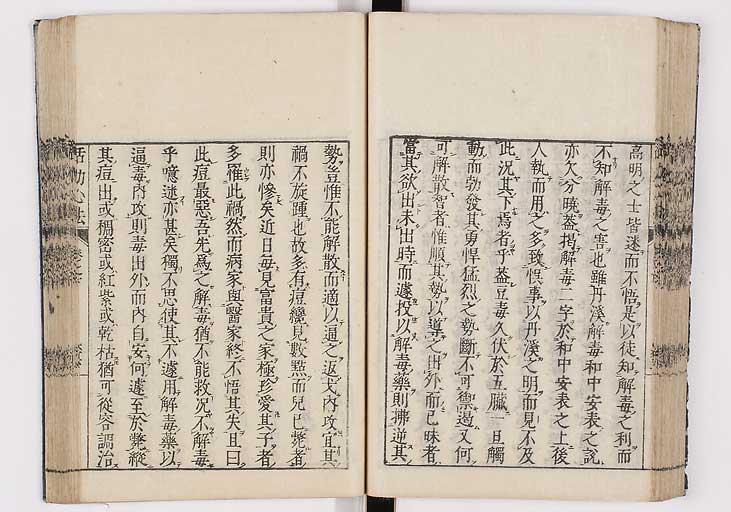 高明之士皆迷而不悟是以徒知解毒之利而
不知解毒之害也雖丹溪解毒和中安表之說
亦欠分曉蓋揭解毒二字於和中安表之上後
人執而用之多致悞事以丹溪之明而見不及
此況其下焉者乎蓋豆毒久伏於五臟一旦觸
動而勃發其勇悍猛烈之勢斷不可禦遏又何
可解散智者惟順其勢以導之出外而已昧者
當其欲出未出時而遽投以解毒藥則拂逆其
勢豈惟不能解散而適以逼之返戈內攻宜其
禍不旋踵也故多有痘纔見數點而兒已斃者
則亦慘矣近日每見富貴之家極珍愛其子者
多罹此禍然而病家與醫家終不悟其失且曰
此痘最惡吾先爲之解毒猶不能救況不解毒
乎噫迷亦甚矣獨不思使其不遽用解毒藥以
逼毒內攻則毒出外而內自安何遽至於斃縱
其痘出或稠密或紅紫或乾枯猶可從容調治
活幼心法